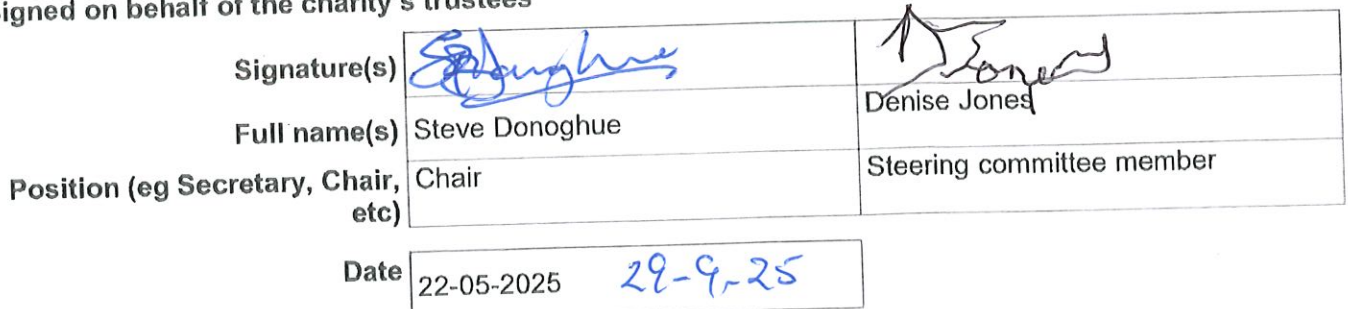 igned on behalf of the charity's trustees
Signature(s)
Full name(s) Steve Donoghue Denise Jones
Position (eg Secretary, Chair, etc) Chair Steering committee member
Date 22-05-2025 29-9-25